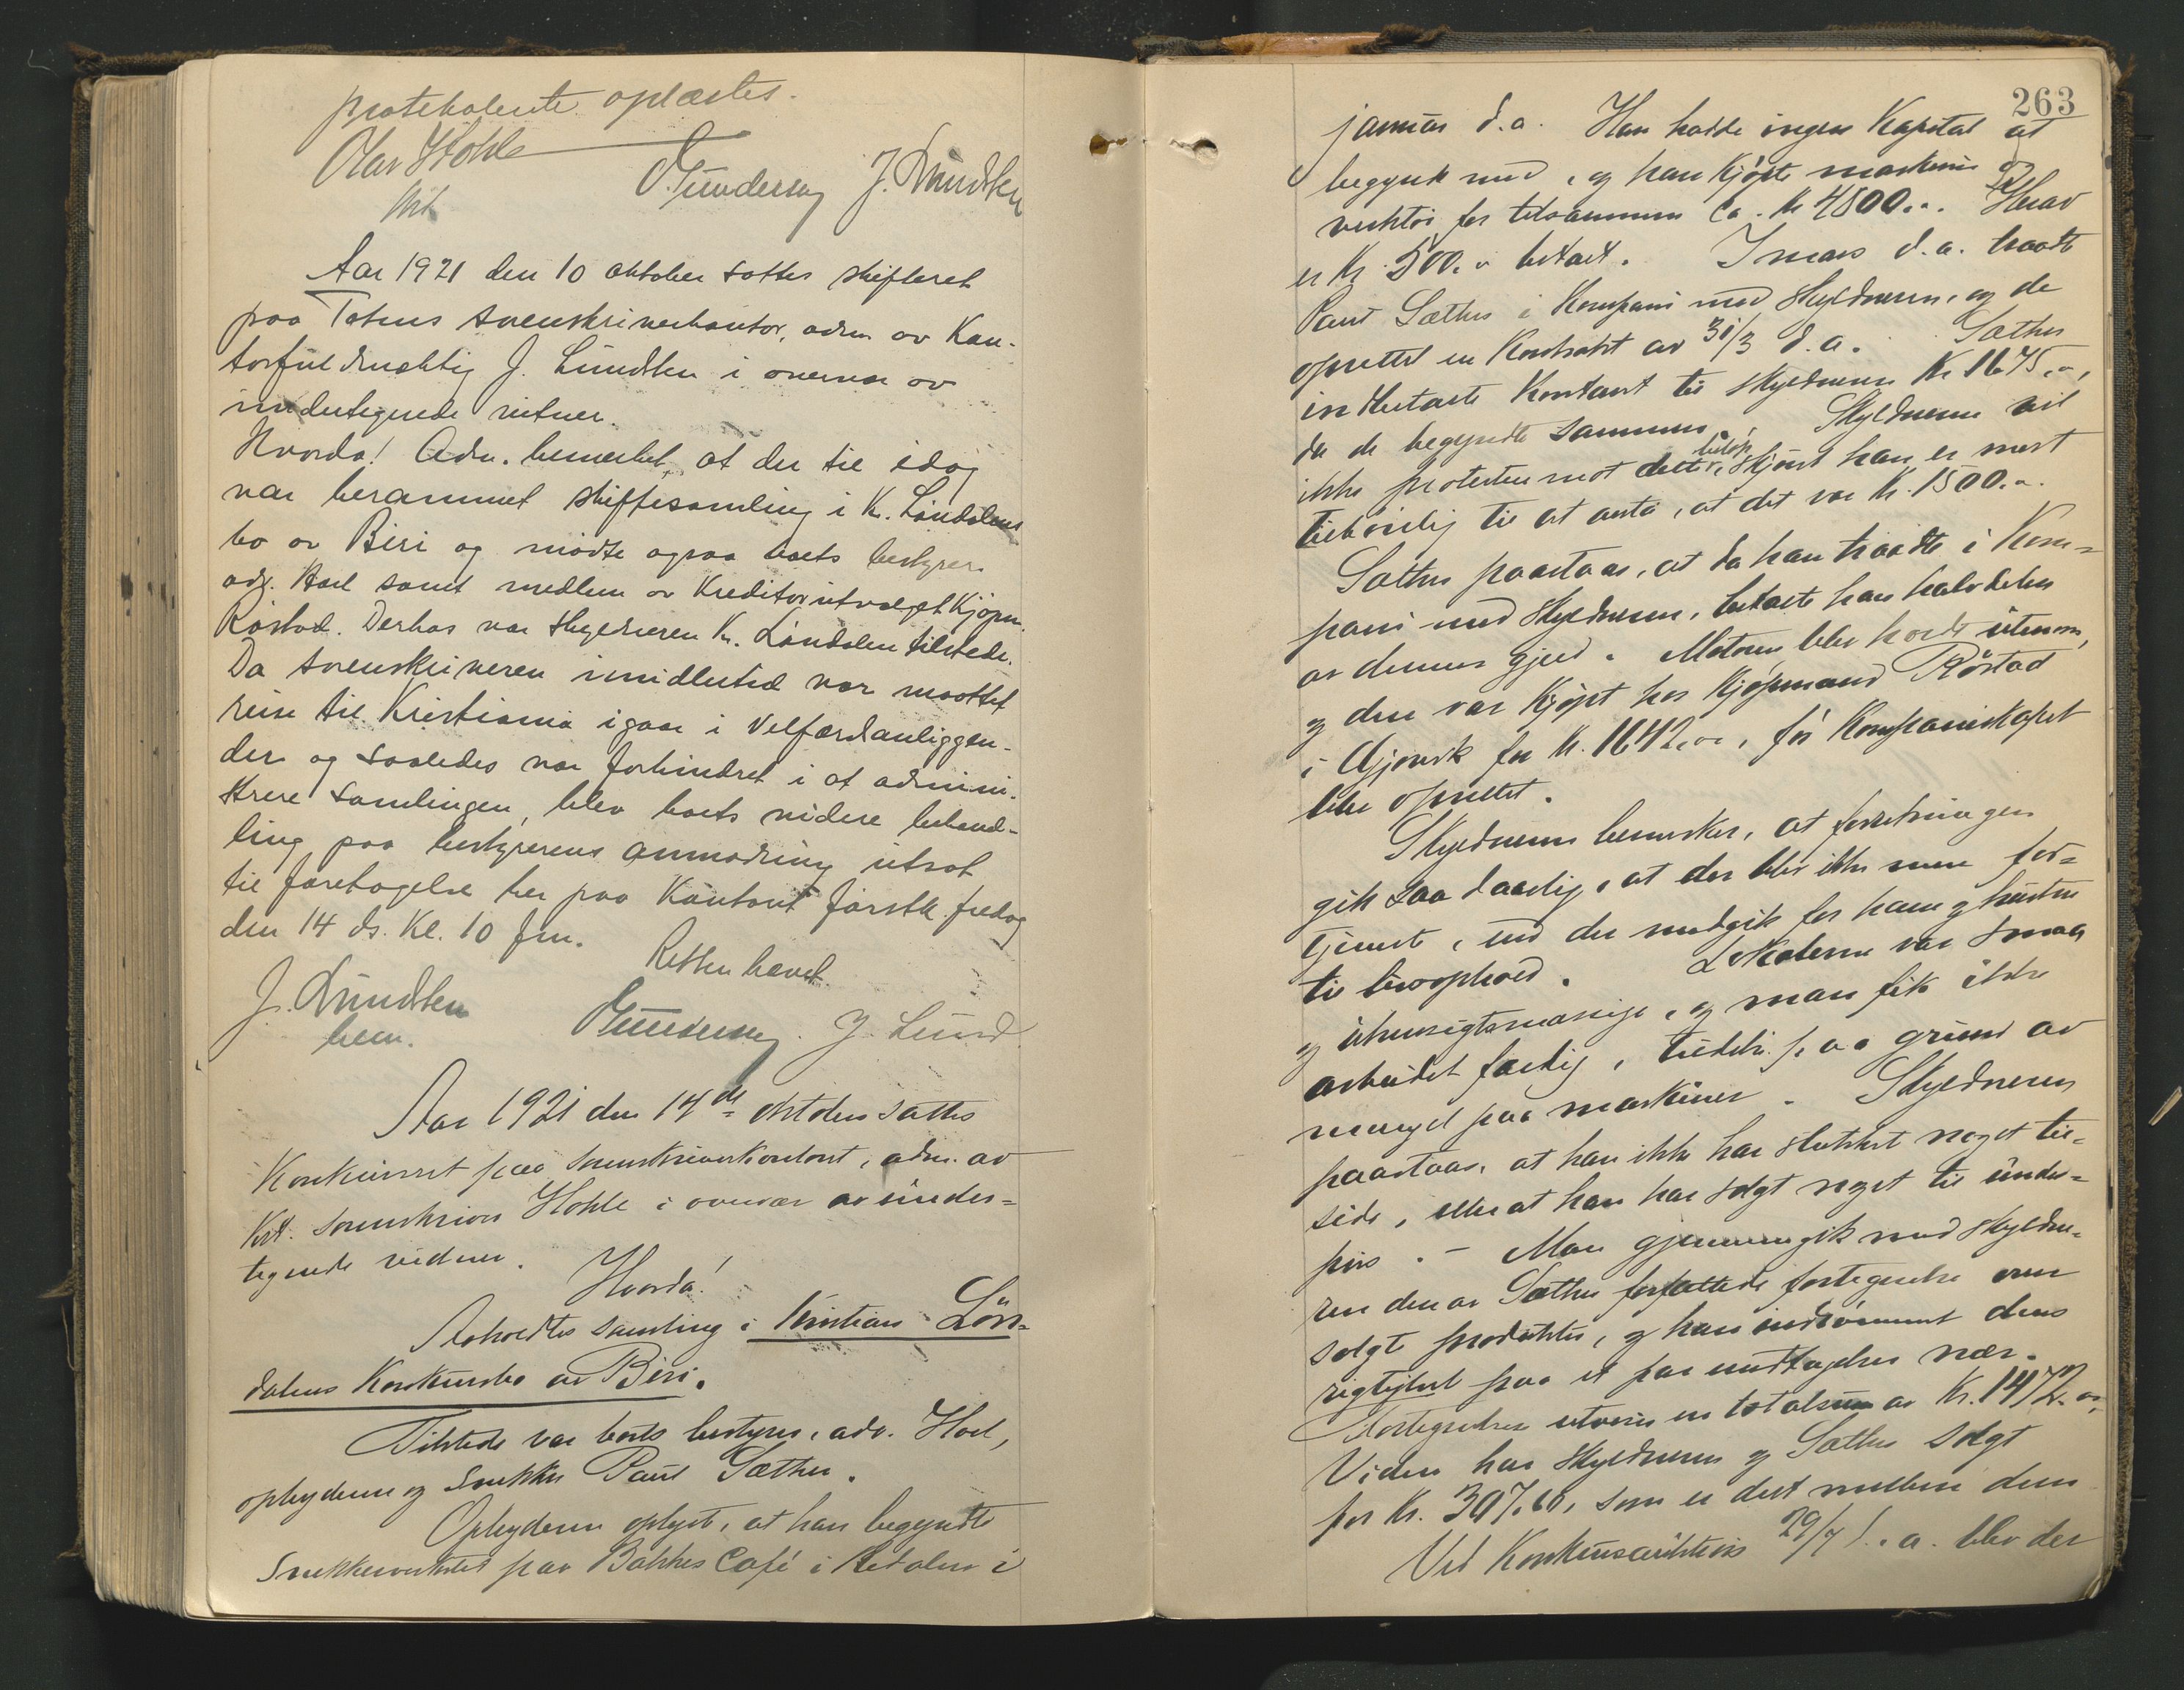 protokolerte oplæstes.
Olav Hohle
kst.
O. Gundersen J. Lundsten
Aar 1921 den 10 oktober sattes skifteret
paa Totens sorenskriverkontor, adm. av Kon-
torfuldmæktig J. Lundsten i overvær av
undertegnede vitner.
Hvorda! Adm. bemerket, at der til idag
var berammet skiftesamling i K. Löndalens
bo av Biri og mödte ogsaa boets bestyrer
adv. Hoel samt medlem av Kreditorutvalget Kjöpm.
Röstad. Derhos var skyldneren Kr. Löndalen tilstede.
Da sorenskriveren imidlertid var maattet
reise til Kristiania igaar i Velfærdanliggen-
der og saaledes var forhindret i at admini-
strere samlingen, blev boets videre behand-
ling paa bestyrerens anmodning utsat
til foretagelse her paa Kontoret förstk. fredag
den 14 ds. Kl. 10 fm.
Retten hævet.
J. Lundsten
bem.
O. Gundersen. J. Lund.
Aar 1921 den 14de oktober sattes
Konkursret paa sorenskriverkontoret, adm. av
kst. sorenskriver Hohle i overvær av under-
tegnede vidner.
Hvorda!
Avholdtes samling i Kristian Lön-
dalens Konkursbo av Biri.
Tilstede var boets bestyrer, adv. Hoel,
opbyderen og snekker Paul Sæther.
Opbyderen oplyste, at han begyndte
snekkerverksted paa Bakkes Café i Redalen i
263
januar d.a. Han hadde ingen Kapital at
begynde med, og han kjöpte maskiner og
verktöi for tilsammen ca. kr 4800.-. Herav
er kr. 500.- betalt. I mars d.a. traadte
Paul Sæther i Kompani med skyldneren, og de
oprettet en Kontrakt av 31/3 d.a. Sæther
indbetalte Kontant til skyldneren kr. 1675.-,
da de begyndte sammen. Skyldneren vil
ikke protestere mot dette beløp, skjönt han er mest
tilböielig til at anta, at det var kr. 1500.-.
Sæther paastaar, at da han traadte i Kom-
pani med skyldneren, betalte han halvdelen
av dennes gjæld. Motoren blev holdt utenom,
og den var kjöpt hos kjöpmand Röstad
i Gjövik for kr. 1642.00, för Kompaniskapet
blev oprettet.
Skyldneren bemerker, at forretningen
gik saa daarlig, at der blev ikke mere for-
tjeneste, end der medgik for ham og hustru
til livsophold. Lokalerne var smaa
og uhensigtsmæssige, og man fik ikke
arbeidet færdig, tildels paa grund av
mangel paa maskiner. Skyldneren
paastaar, at han ikke har stukket noget til-
side, eller at han har solgt noget til under-
pris. - Man gjennemgik med skyldne-
ren den av Sæther forfattede fortegnelse over
solgt produkter, og han indrömmet dens
rigtighet paa et par undtagelser nær.
Fortegnelsen utviser en totalsum av Kr. 1472.00,
Viden har skyldneren og Sæther solgt
for Kr. 307.60, som er delt mellem dem
Ved Konkursauktion 29/7 d.a. blev der